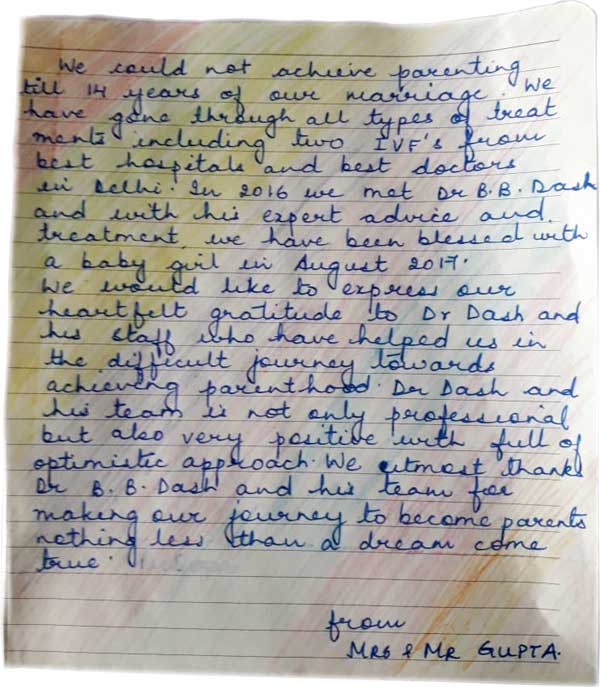 We could not achieve parenting
till 14 years of our marriage. We
have gone through all types of treat
ments including two IVF's from
best hospitals and best doctors
in Delhi. In 2016 we met Dr B.B. Dash
and with his expert advice and
treatment, we have been blessed with
a baby girl in August 2017.
We would like to express our
heartfelt gratitude to Dr Dash and
his staff who have helped us in
the difficult journey towards
achieving parenthood. Dr Dash and
his team is not only professional
but also very positive with full of
optimistic approach. We utmost thanks
Dr B. B. Dash and his team for
making our journey to become parents
nothing less than a dream come
true.
from
MRS & MR GUPTA.